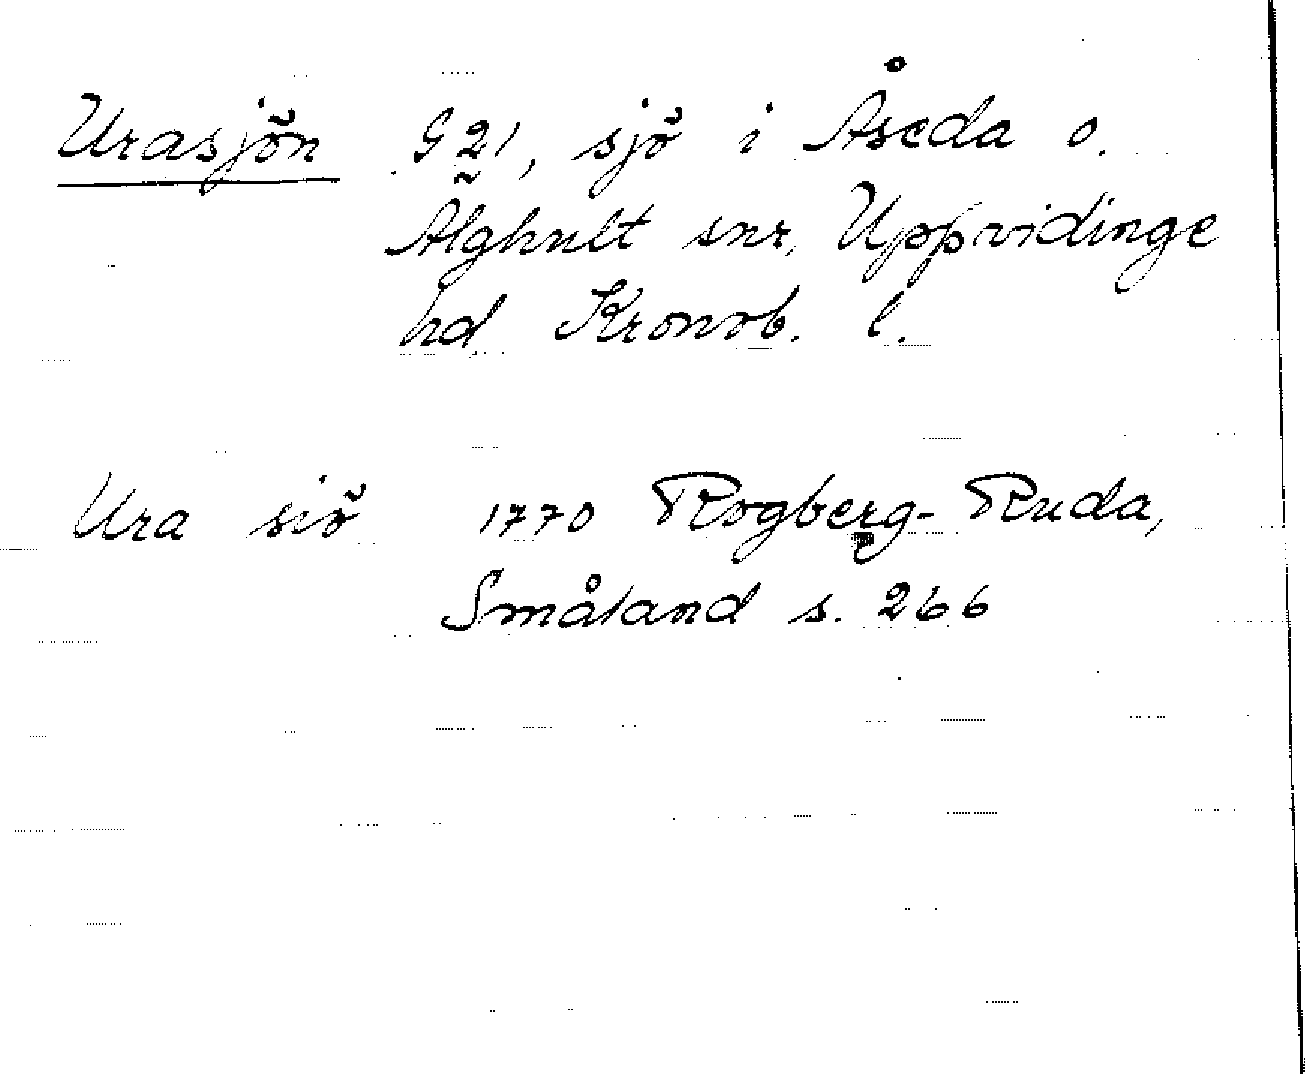 Urasjön G 21, sjö i Åseda o.
Älghult snr, Uppvidinge
hd Kronob. l.
Ura siö 1770 Rogberg-Ruda,
Småland s. 266